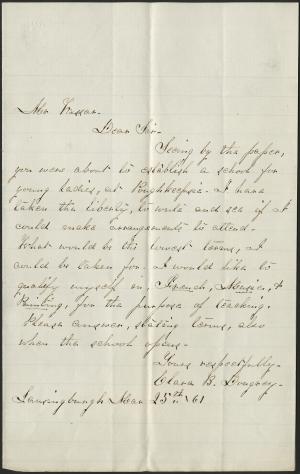 Mr. Vassar.
Dear Sir-
Seeing by the paper,
you were about to establish a school for
young ladies, at Poughkeepsie. I have
taken the liberty, to write and see if I
could make arrangements to attend.
What would be the lowest terms, I
could be taken for. I would like to
qualify myself in, French, Music, &
Painting, for the purpose of teaching.
Please answer, stating terms, also
when the school opens.
Yours respectfully-
Clara B.
Lansingburgh Mar 25th /61